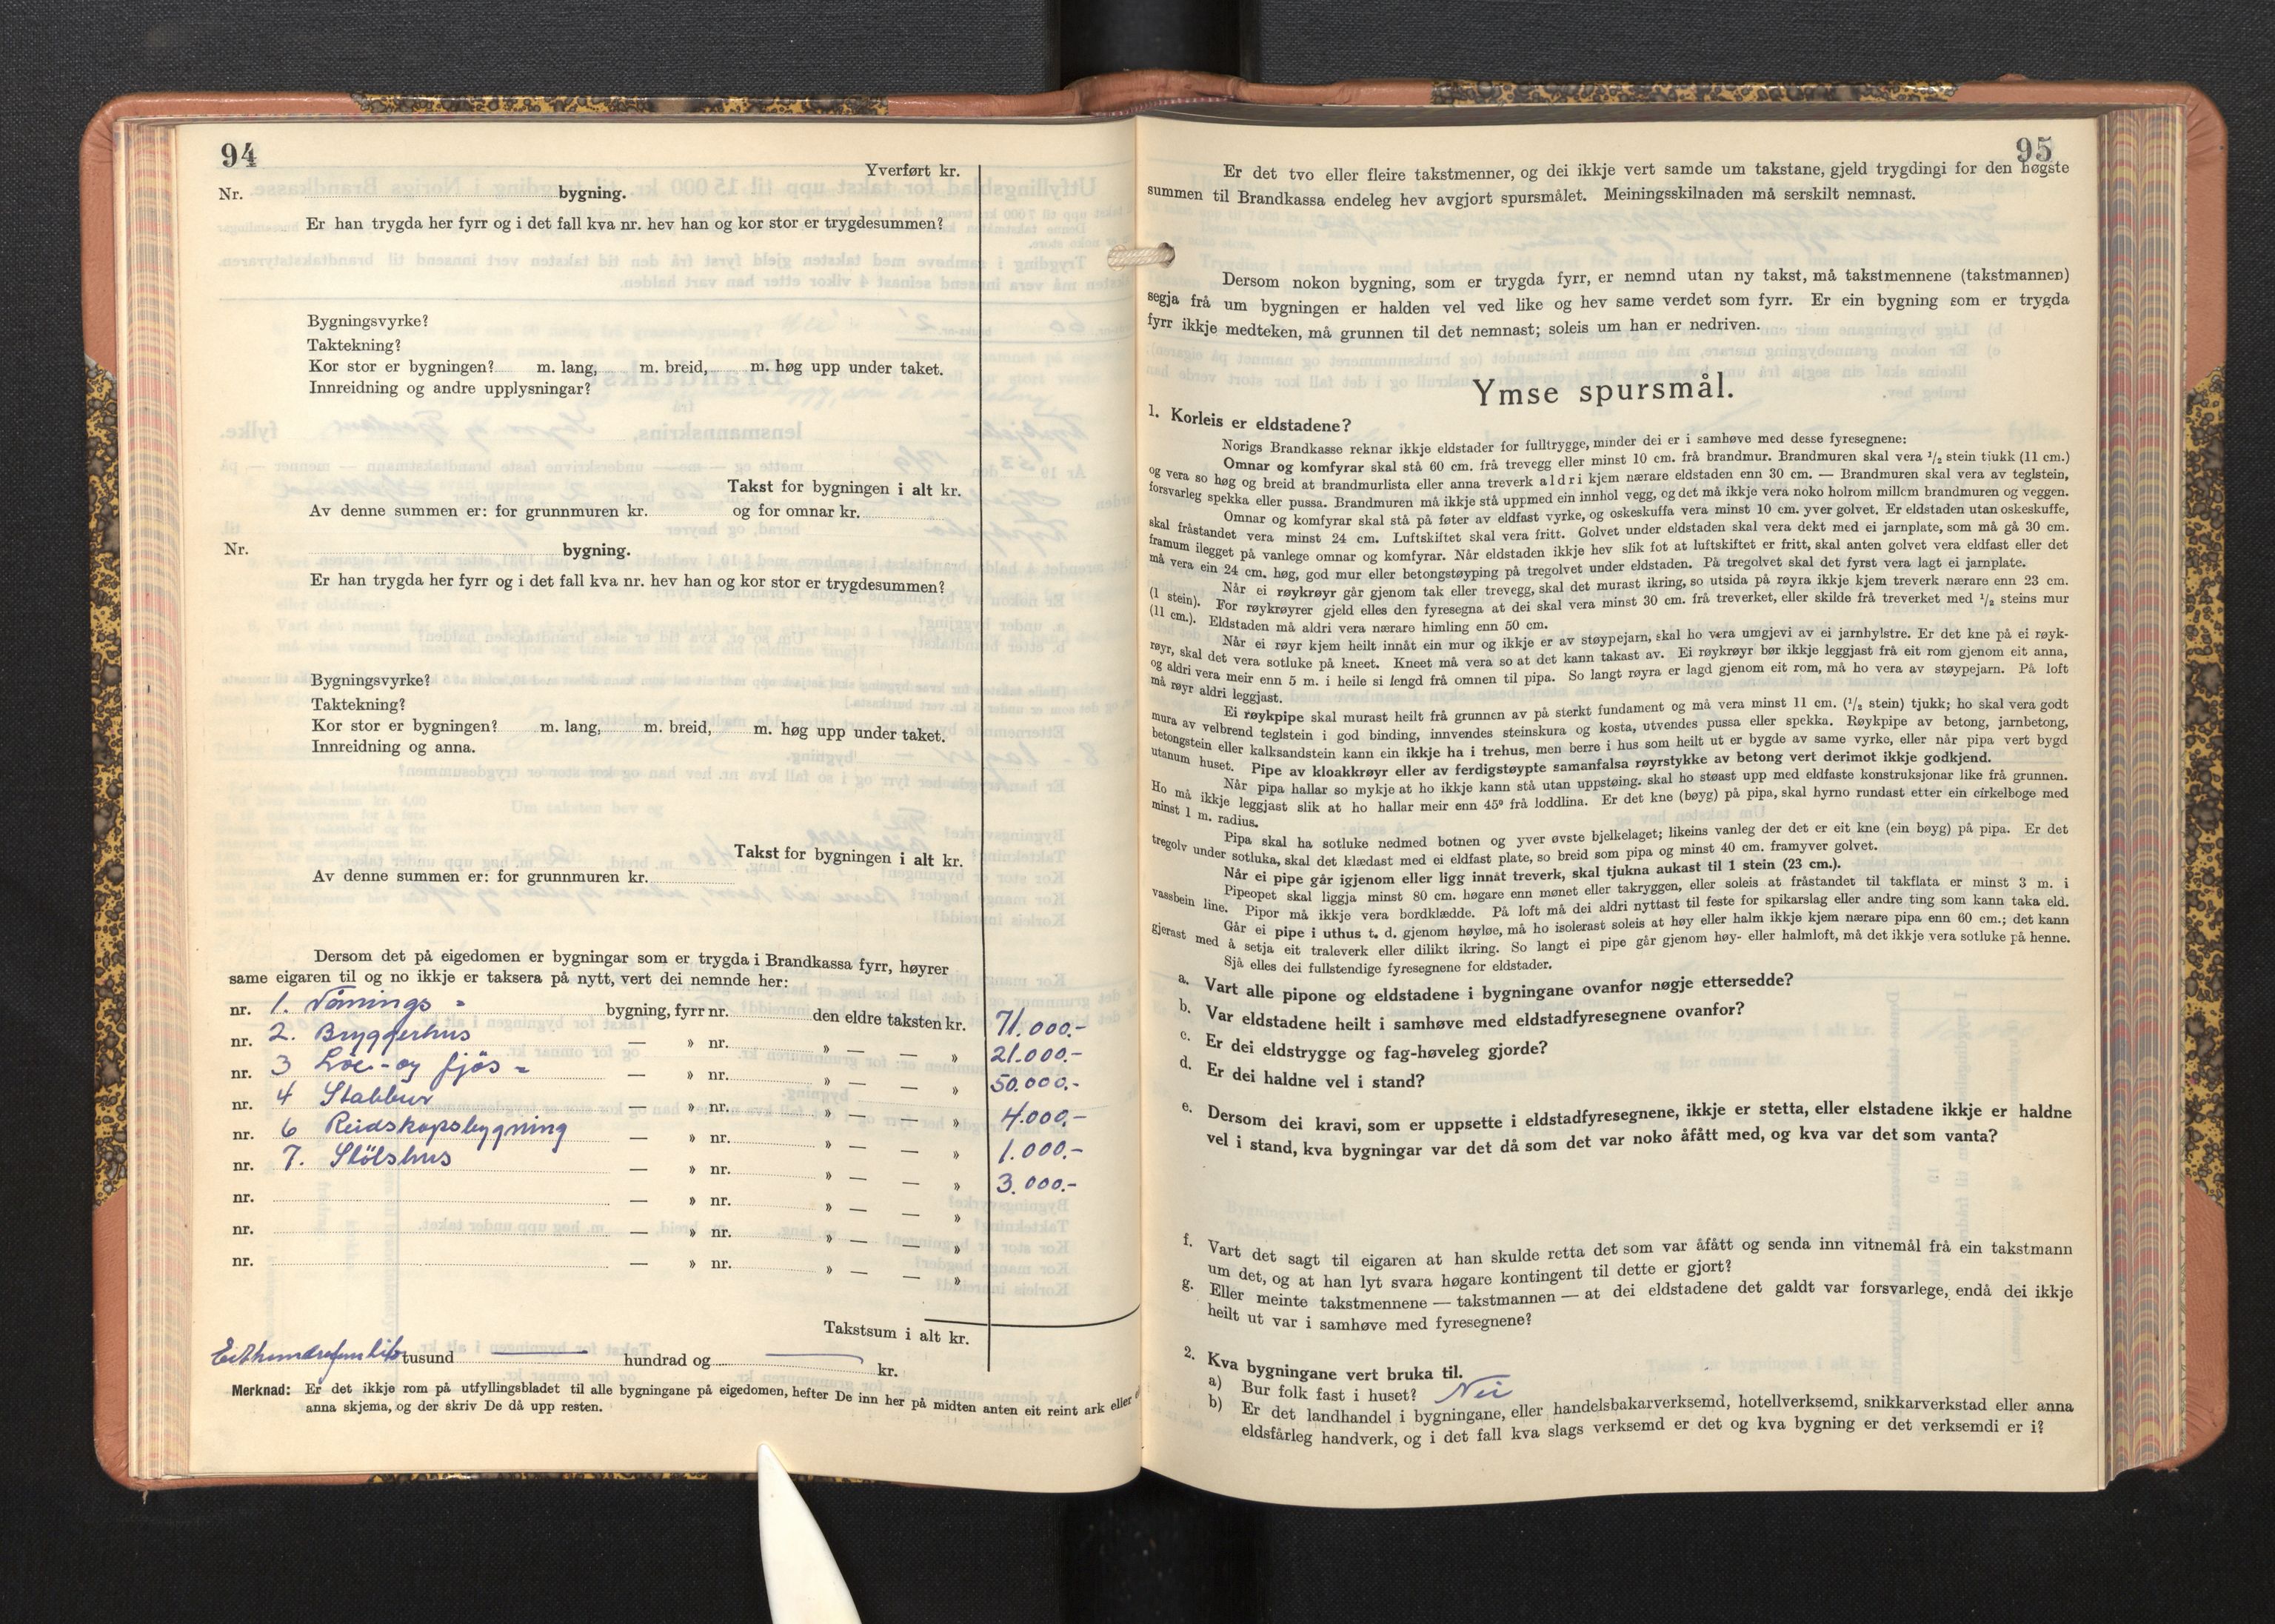 94
Yverført kr.
Nr. bygning.
Er han trygda her fyrr og i det fall kva nr. hev han og kor stor er trygdesummen?
Bygningsvyrke?
Taktekning?
Kor stor er bygningen? m. lang, m. breid, m. høg upp under taket.
Innreidning og andre upplysningar?
Takst for bygningen i alt kr.
Av denne summen er: for grunnmuren kr. og for omnar kr.
Nr. bygning.
Er han trygda her fyrr og i det fall kva nr. hev han og kor stor er trygdesummen?
Bygningsvyrke?
Taktekning?
Kor stor er bygningen? m. lang, m. breid, m. høg upp under taket.
Innreidning og anna.
Takst for bygningen i alt kr.
Av denne summen er: for grunnmuren kr.
Dersom det på eigedomen er bygningar som er trygda i Brandkassa fyrr, høyrer
same eigaren til og no ikkje er taksera på nytt, vert dei nemnde her:
nr. 1. Vånings - bygning, fyrr nr. den eldre taksten kr. 71.000.-
nr. 2. Bryggerhus — » nr. » — — » 21.000.-
nr. 3 Löe- og fjös - — » nr. » — — » 50.000.-
nr. 4 Stabbur — » nr. » — — » 4.000.-
nr. 6 Reidskapsbygning — » nr. » — — » 1.000.-
nr. 7. Stölshus — » nr. » — — » 3.000.-
nr. — » nr. » — — »
nr. — » nr. » — — »
nr. — » nr. » — — »
Takstsum i alt kr.
tusund — hundrad og — kr.
Merknad: Er det ikkje rom på utfyllingsbladet til alle bygningane på eigedomen, hefter De inn her på midten anten eit reint ark eller
anna skjema, og der skriv De då upp resten.
95
Er det tvo eller fleire takstmenner, og dei ikkje vert samde um takstane, gjeld trygdingi for den høgste
summen til Brandkassa endeleg hev avgjort spursmålet. Meiningsskilnaden må serskilt nemnast.
Dersom nokon bygning, som er trygda fyrr, er nemnd utan ny takst, må takstmennene (takstmannen)
segja frå um bygningen er halden vel ved like og hev same verdet som fyrr. Er ein bygning som er trygda
fyrr ikkje medteken, må grunnen til det nemnast; soleis um han er nedriven.
Ymse spursmål.
1. Korleis er eldstadene?
Norigs Brandkasse reknar ikkje eldstader for fulltrygge, minder dei er i samhøve med desse fyresegnene:
Omnar og komfyrar skal stå 60 cm. frå trevegg eller minst 10 cm. frå brandmur. Brandmuren skal vera ½ stein tjukk (11 cm.)
og vera so høg og breid at brandmurlista eller anna treverk aldri kjem nærare eldstaden enn 30 cm. — Brandmuren skal vera av teglstein,
forsvarleg spekka eller pussa. Brandmuren må ikkje stå uppmed ein innhol vegg, og det må ikkje vera noko holrom millom brandmuren og veggen.
Omnar og komfyrar skal stå på føter av eldfast vyrke, og oskeskuffa vera minst 10 cm. yver golvet. Er eldstaden utan oskeskuffe,
skal fråstandet vera minst 24 cm. Luftskiftet skal vera fritt. Golvet under eldstaden skal vera dekt med ei jarnplate, som må gå 30 cm.
framum ilegget på vanlege omnar og komfyrar. Når eldstaden ikkje hev slik fot at luftskiftet er fritt, skal anten golvet vera eldfast eller det
må vera ein 24 cm. høg, god mur eller betongstøyping på tregolvet under eldstaden. På tregolvet skal det fyrst vera lagt ei jarnplate.
Når ei røykrøyr går gjenom tak eller trevegg, skal det murast ikring, so utsida på røyra ikkje kjem treverk nærare enn 23 cm.
(1 stein). For røykrøyrer gjeld elles den fyresegna at dei skal vera minst 30 cm. frå treverket, eller skilde frå treverket med ½ steins mur
(11 cm.). Eldstaden må aldri vera nærare himling enn 50 cm.
Når ei røyr kjem heilt innåt ein mur og ikkje er av støypejarn, skal ho vera umgjevi av ei jarnhylstre. Er det kne på ei røyk-
røyr, skal det vera sotluke på kneet. Kneet må vera so at det kann takast av. Ei røykrøyr bør ikkje leggjast frå eit rom gjenom eit anna,
og aldri vera meir enn 5 m. i heile si lengd frå omnen til pipa. So langt røyra er lagd gjenom eit rom, må ho vera av støypejarn. På loft
må røyr aldri leggjast.
Ei røykpipe skal murast heilt frå grunnen av på sterkt fundament og må vera minst 11 cm. (½ stein) tjukk; ho skal vera godt
mura av velbrend teglstein i god binding, innvendes steinskura og kosta, utvendes pussa eller spekka. Røykpipe av betong, jarnbetong,
betongstein eller kalksandstein kann ein ikkje ha i trehus, men berre i hus som heilt ut er bygde av same vyrke, eller når pipa vert bygd
utanum huset. Pipe av kloakkrøyr eller av ferdigstøypte samanfalsa røyrstykke av betong vert derimot ikkje godkjend.
Når pipa hallar so mykje at ho ikkje kann stå utan uppstøing, skal ho støast upp med eldfaste konstruksjonar like frå grunnen.
Ho må ikkje leggjast slik at ho hallar meir enn 45° frå loddlina. Er det kne (bøyg) på pipa, skal hyrno rundast etter ein cirkelboge med
minst 1 m. radius.
Pipa skal ha sotluke nedmed botnen og yver øvste bjelkelaget; likeins vanleg der det er eit kne (ein bøyg) på pipa. Er det
tregolv under sotluka, skal det klædast med ei eldfast plate, so breid som pipa og minst 40 cm. framyver golvet.
Når ei pipe går igjenom eller ligg innåt treverk, skal tjukna aukast til 1 stein (23 cm.).
Pipeopet skal liggja minst 80 cm. høgare enn mønet eller takryggen, eller soleis at fråstandet til takflata er minst 3 m. i
vassbein line. Pipor må ikkje vera bordklædde. På loft må dei aldri nyttast til feste for spikarslag eller andre ting som kann taka eld.
Går ei pipe i uthus t. d. gjenom høyløe, må ho isolerast soleis at høy eller halm ikkje kjem nærare pipa enn 60 cm.; det kann
gjerast med å setja eit traleverk eller dilikt ikring. So langt ei pipe går gjenom høy- eller halmloft, må det ikkje vera sotluke på henne.
Sjå elles dei fullstendige fyresegnene for eldstader.
a. Vart alle pipone og eldstadene i bygningane ovanfor nøgje ettersedde?
b. Var eldstadene heilt i samhøve med eldstadfyresegnene ovanfor?
c. Er dei eldstrygge og fag-høveleg gjorde?
d. Er dei haldne vel i stand?
e. Dersom dei kravi, som er uppsette i eldstadfyresegnene, ikkje er stetta, eller elstadene ikkje er haldne
vel i stand, kva bygningar var det då som det var noko åfått med, og kva var det som vanta?
f. Vart det sagt til eigaren at han skulde retta det som var åfått og senda inn vitnemål frå ein takstmann
um det, og at han lyt svara høgare kontingent til dette er gjort?
g. Eller meinte takstmennene — takstmannen — at dei eldstadene det galdt var forsvarlege, endå dei ikkje
heilt ut var i samhøve med fyresegnene?
2. Kva bygningane vert bruka til.
a) Bur folk fast i huset? Nei
b) Er det landhandel i bygningane, eller handelsbakarverksemd, hotellverksemd, snikkarverkstad eller anna
eldsfårleg handverk, og i det fall kva slags verksemd er det og kva bygning er det verksemdi er i?